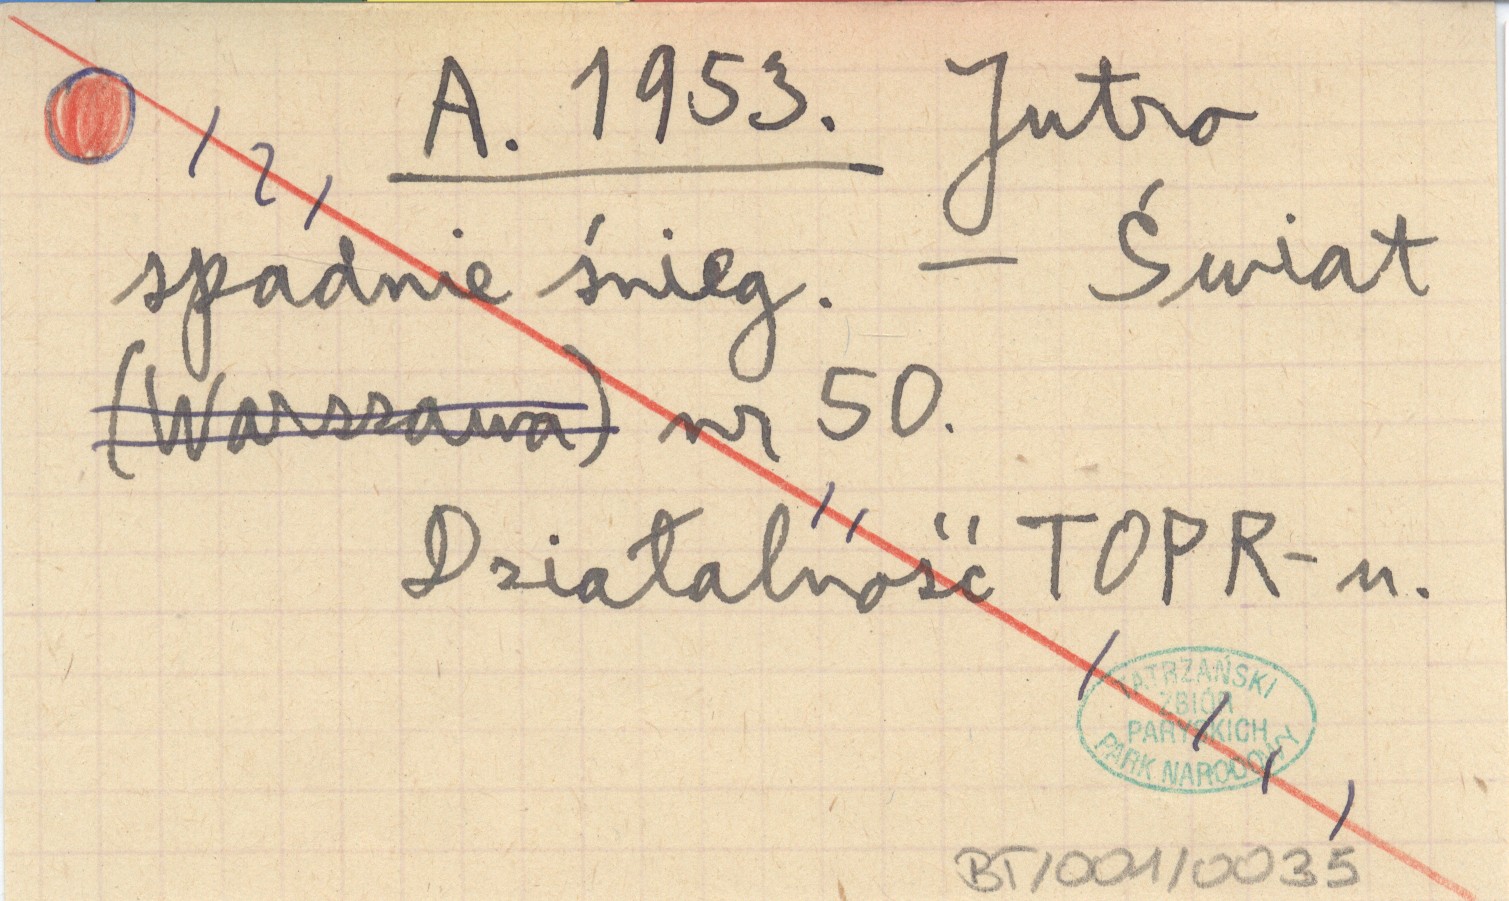 A. 1953. Jutro
spadnie śnieg. — Świat
(Warszawa) nr 50.
Działalność TOPR-u.
TATRZAŃSKI
ZBIÓR
PARYSKICH
PARK NARODOWY
BT/001/0035